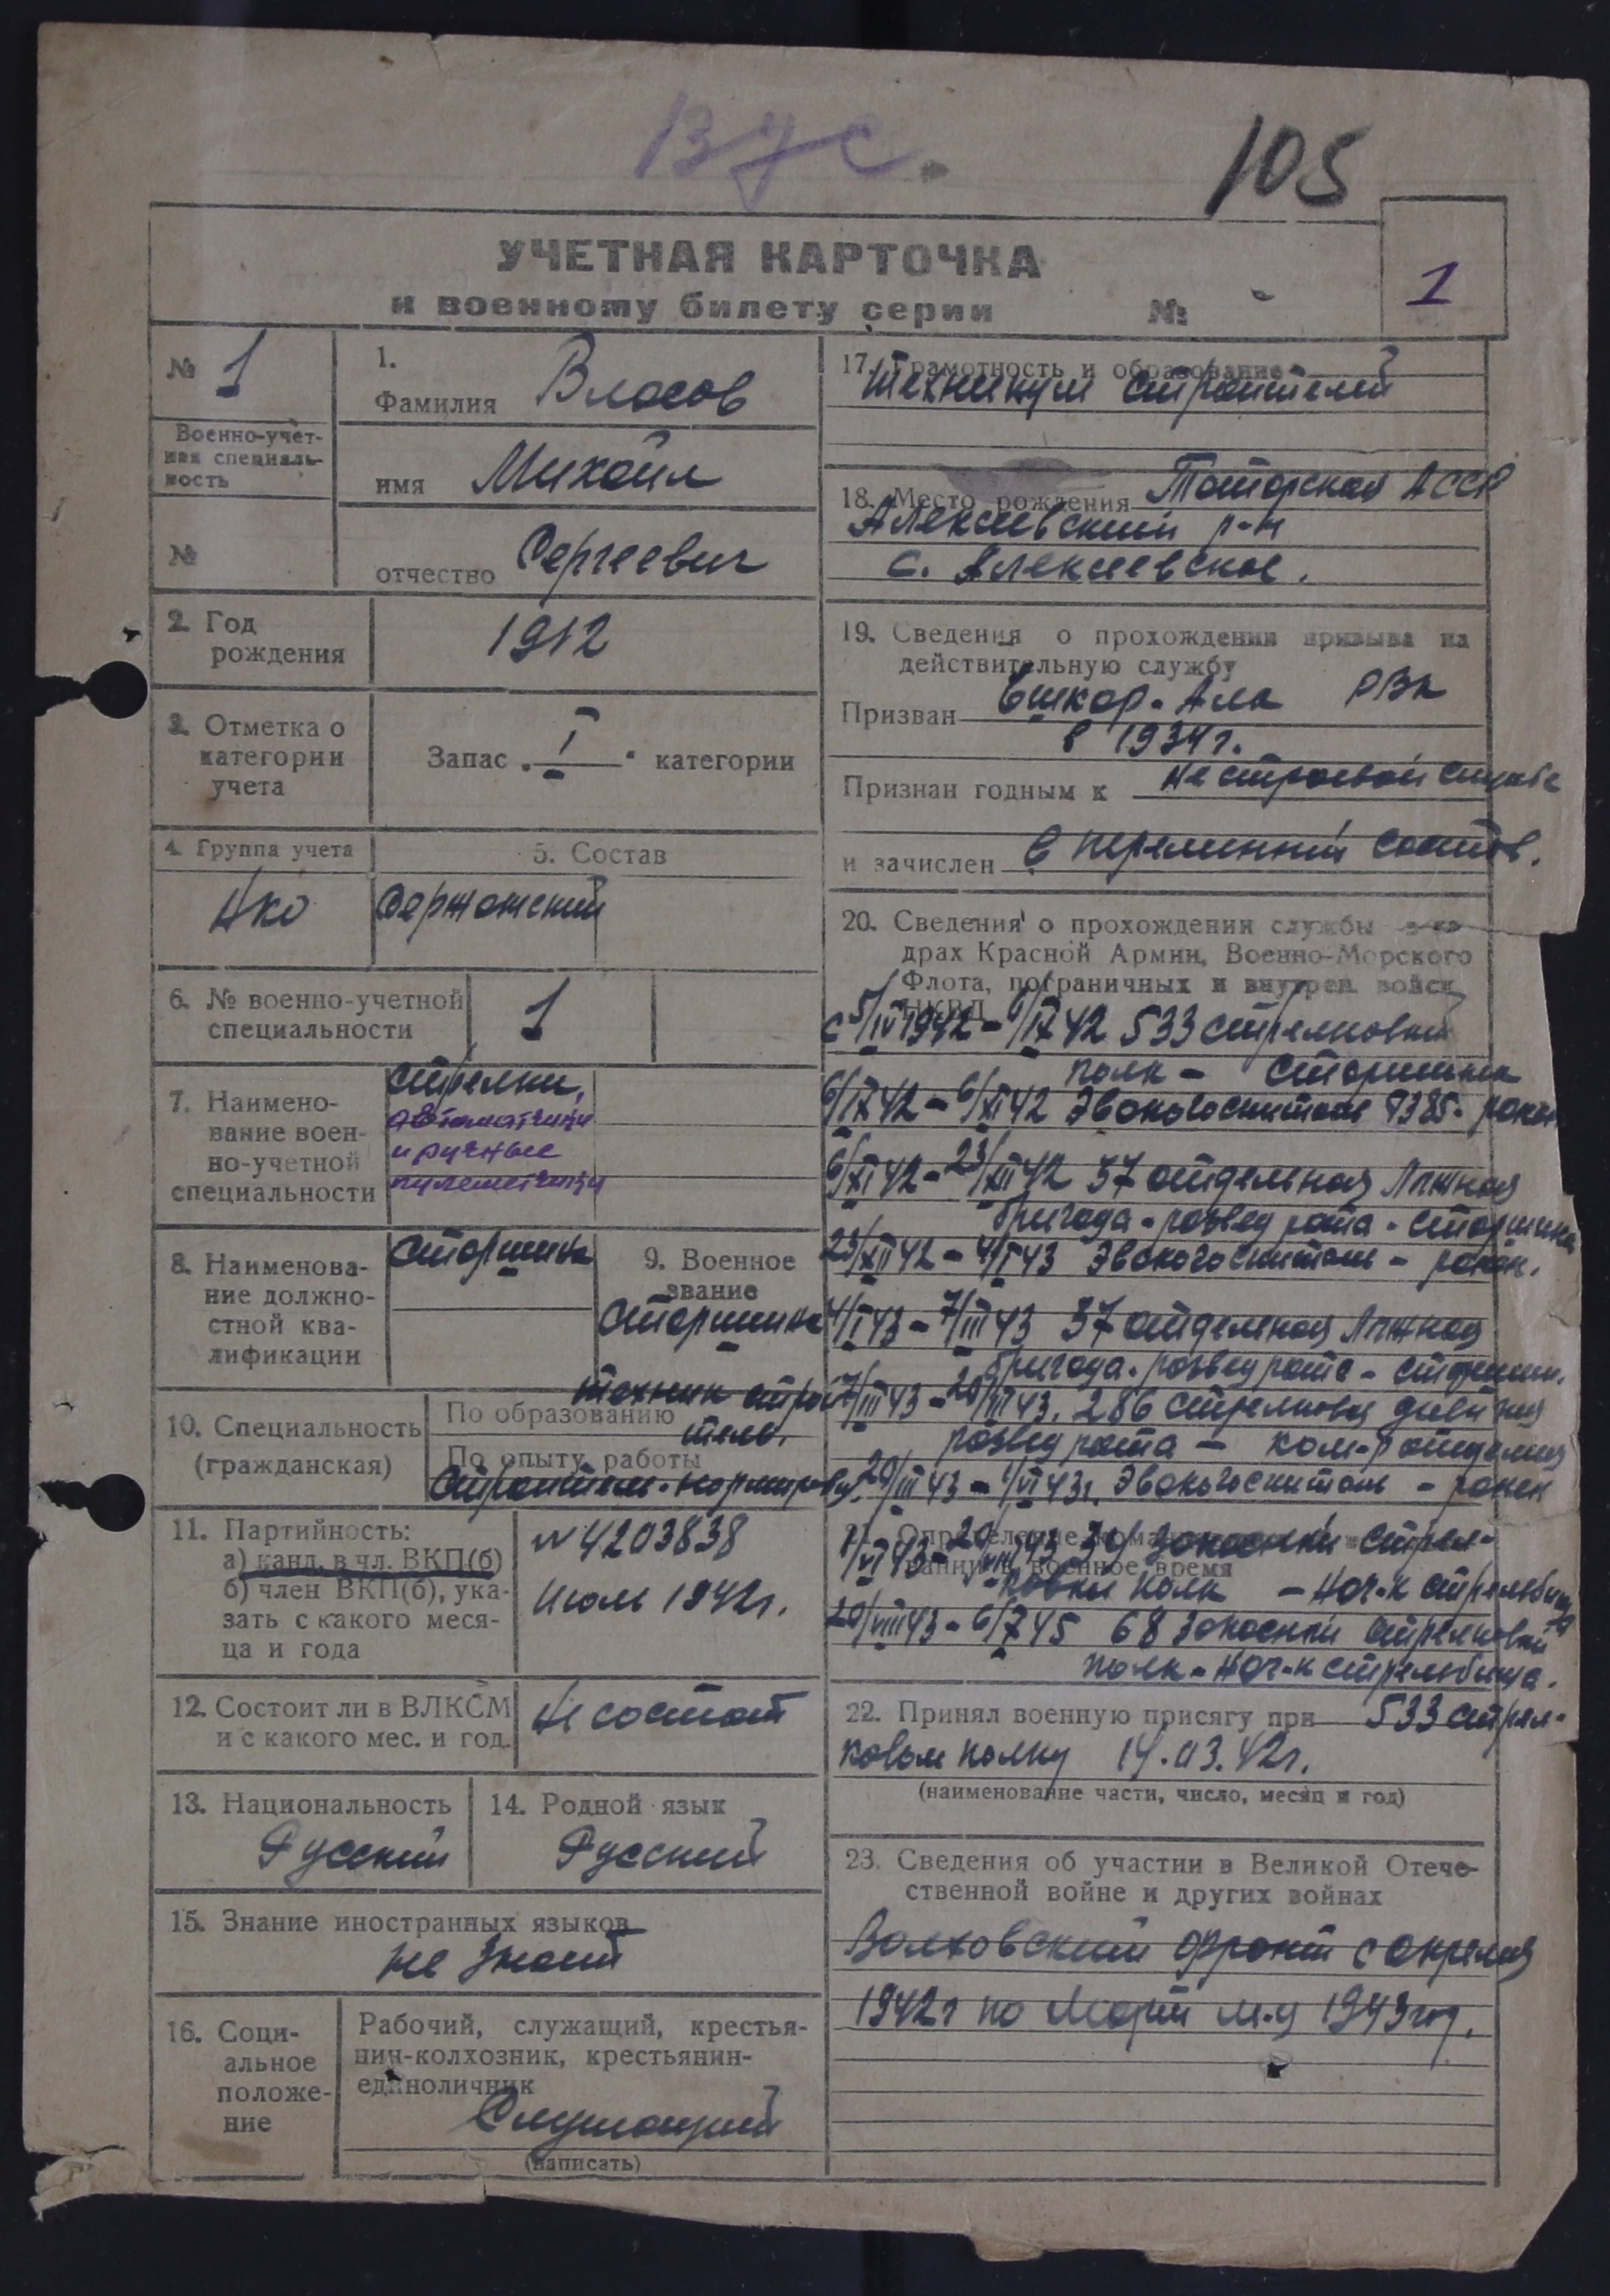 ВУС.
105
УЧЕТНАЯ КАРТОЧКА
к военному билету серии №
1
№ 1
Военно-учет-
ная специаль-
ность
№
1.
Фамилия Власов
имя Михаил
отчество Сергеевич
2. Год
рождения
1912
3. Отметка о
категории
учета
Запас „ I " категории
4. Группа учета
НКО
5. Состав
Сержантский
6. № военно-учетной
специальности
1
7. Наимено-
вание воен-
но-учетной
специальности
Стрелки,
автоматчики
и ручные
пулеметчики
8. Наименова-
ние должно-
стной ква-
лификации
Старшина
9. Военное
звание
Старшина
10. Специальность
(гражданская)
По образованию техник строи-
тель.
По опыту работы
Строитель-нормировщ.
11. Партийность:
а) канд. в чл. ВКП(б)
б) член ВКП(б), ука-
зать с какого меся-
ца и года
№ 4203838
Июль 1942г.
12. Состоит ли в ВЛКСМ
и с какого мес. и год.
Не состоит
13. Национальность
Русский
14. Родной язык
Русский
15. Знание иностранных языков
не знает
16. Соци-
альное
положе-
ние
Рабочий, служащий, крестья-
нин-колхозник, крестьянин-
единоличник
Служащий
(написать)
17. Грамотность и образование
техникум строителей
18. Место рождения Татарская АССР
Алексеевский р-н
с. Алексеевское.
19. Сведения о прохождении призыва на
действительную службу
Призван Ешкар-Ала РВК
в 1934г.
Признан годным к нестроевой службе
и зачислен в переменный состав.
20. Сведения о прохождении службы в ка-
драх Красной Армии, Военно-Морского
Флота, пограничных и внутрен. войск
НКВД
с 5/IV 1942 - 6/IX 42 533 стрелковый
полк - старшина
6/IX 42 - 6/XI 42 Эвакогоспиталь 9385. ранен
6/XI 42 - 23/XII 42 37 отдельная лыжная
бригада - развед рота - старшина
23/XII 42 - 4/I 43 Эвакогоспиталь - ранен.
4/I 43 - 7/III 43 37 отдельная лыжная
бригада - развед рота - старшин.
7/III 43 - 20/III 43. 286 стрелковая дивизия
развед рота - ком-р отделения
20/III 43 - 1/VI 43г. Эвакогоспиталь - ранен
21. Определение
военное время
1/VI 43 - 20/VIII 43 39 запасный стрел-
ковый полк - нач-к стрельбища
20/VIII 43 - 6/X 45 68 запасный стрелковый
полк - нач-к стрельбища.
22. Принял военную присягу при 533 стрел-
ковом полку 14.03.42г.
(наименование части, число, месяц и год)
23. Сведения об участии в Великой Отече-
ственной войне и других войнах
Волховский фронт с апреля
1942г по март м-ц 1943год.